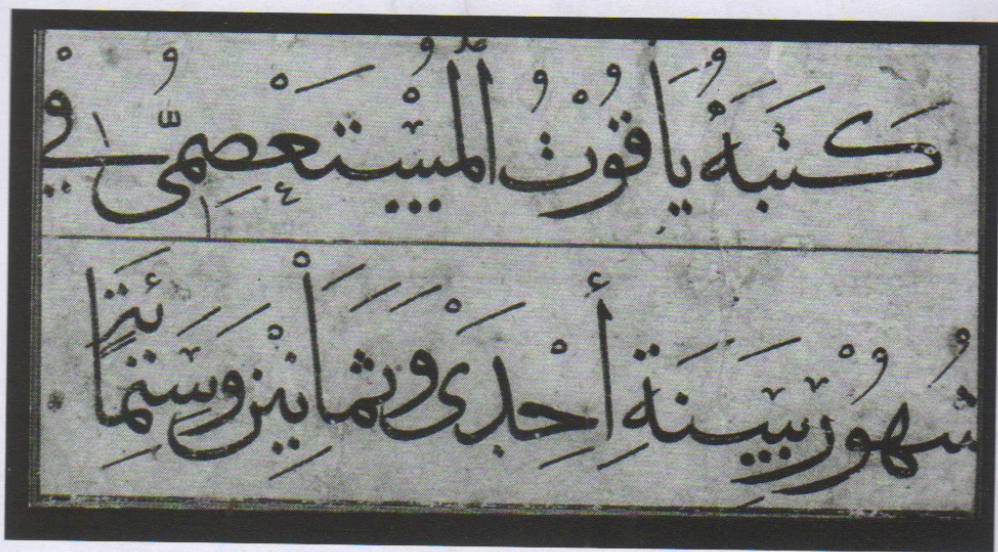 كَتَبَهُ يَاقُوْتُ الْمُسْتَعْصِمِيُّ فِيْ
شُهُوْرِ سَنَةِ أَحْدَىْ وَثَمَانِيْنَ وَسِتَّمِائَةٍ